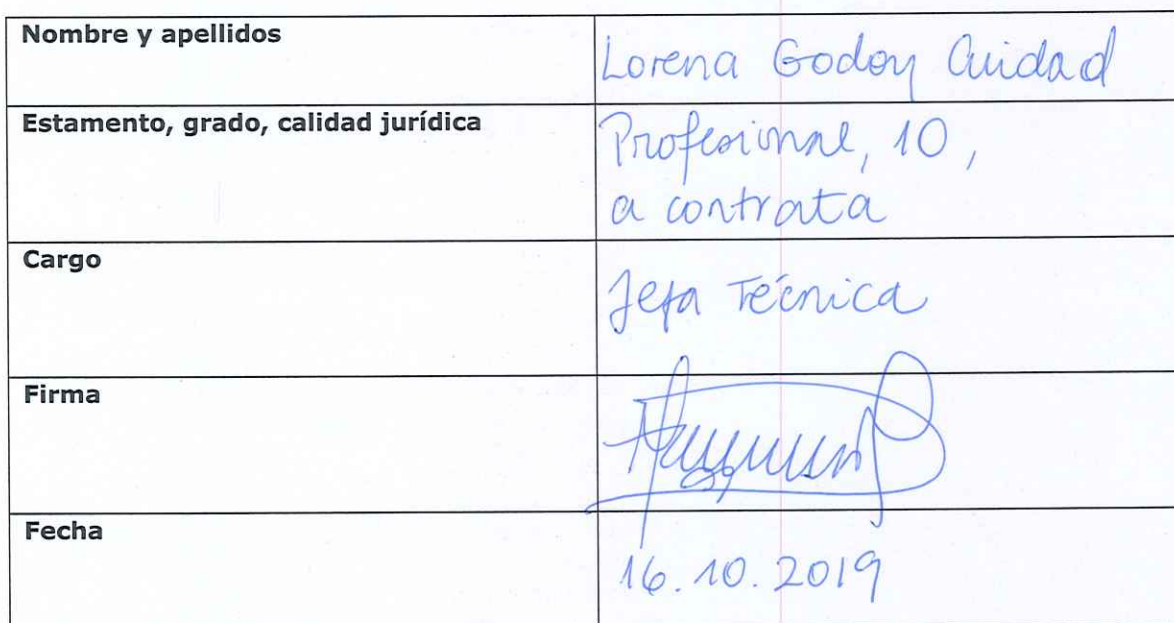 Nombre y apellidos
Lorena Godoy Cuidad
Estamento, grado, calidad jurídica
Profesional, 10,
a contrata
Cargo
Jefa Técnica
Firma
Fecha
16.10.2019